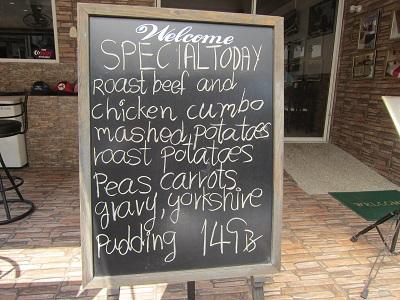 Welcome
SPECIAL TODAY
Roast beef and
chicken cumbo
mashed potatoes
roast potatoes
Peas carrots
gravy, yorkshire
Pudding 149฿
WELCOME